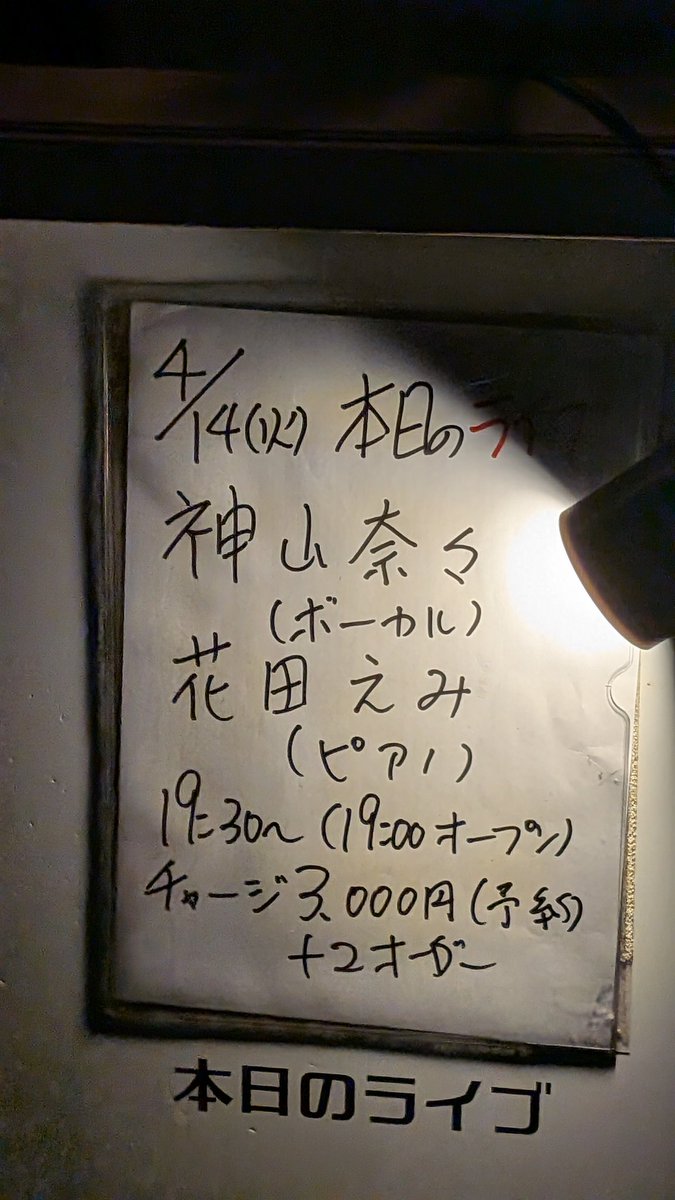 4/14(火) 本日のライ
神山奈々
(ボーカル)
花田えみ
(ピアノ)
19:30〜 (19:00オープン)
チャージ3,000円(予約)
+2オーダー
本日のライブ